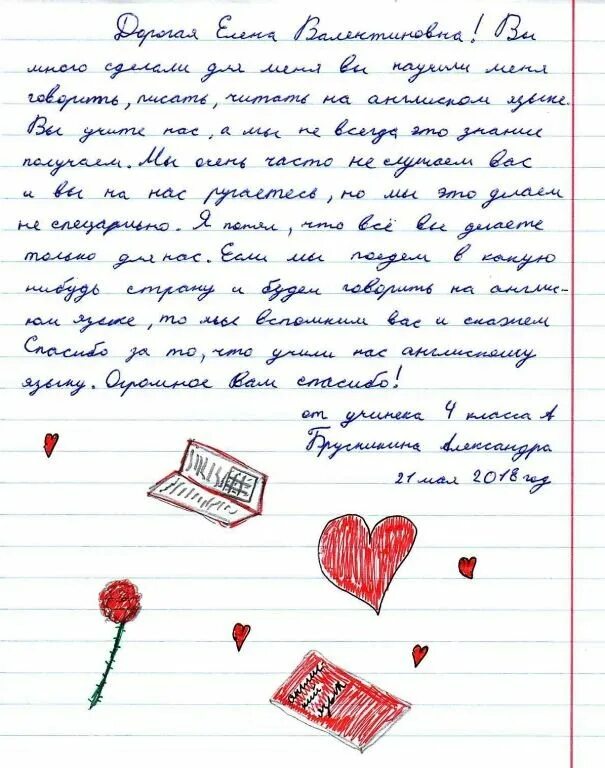 Дорогая Елена Валентиновна! Вы
много сделали для меня вы научили меня
говорить, писать, читать на англиском языке.
Вы учите нас, а мы не всегда это знание
получаем. Мы очень часто не слушаем вас
и вы на нас ругаетесь, но мы это делаем
не специально. Я понял, что всё вы делаете
только для нас. Если мы поедем в какую
нибудь страну и будем говорить на англис-
ком языке, то мы вспомним вас и скажем
Спасибо за то, что учили нас англискому
языку. Огромное Вам спасибо!
от учинека 4 класса А
Александра
21 мая 2018 год
язык